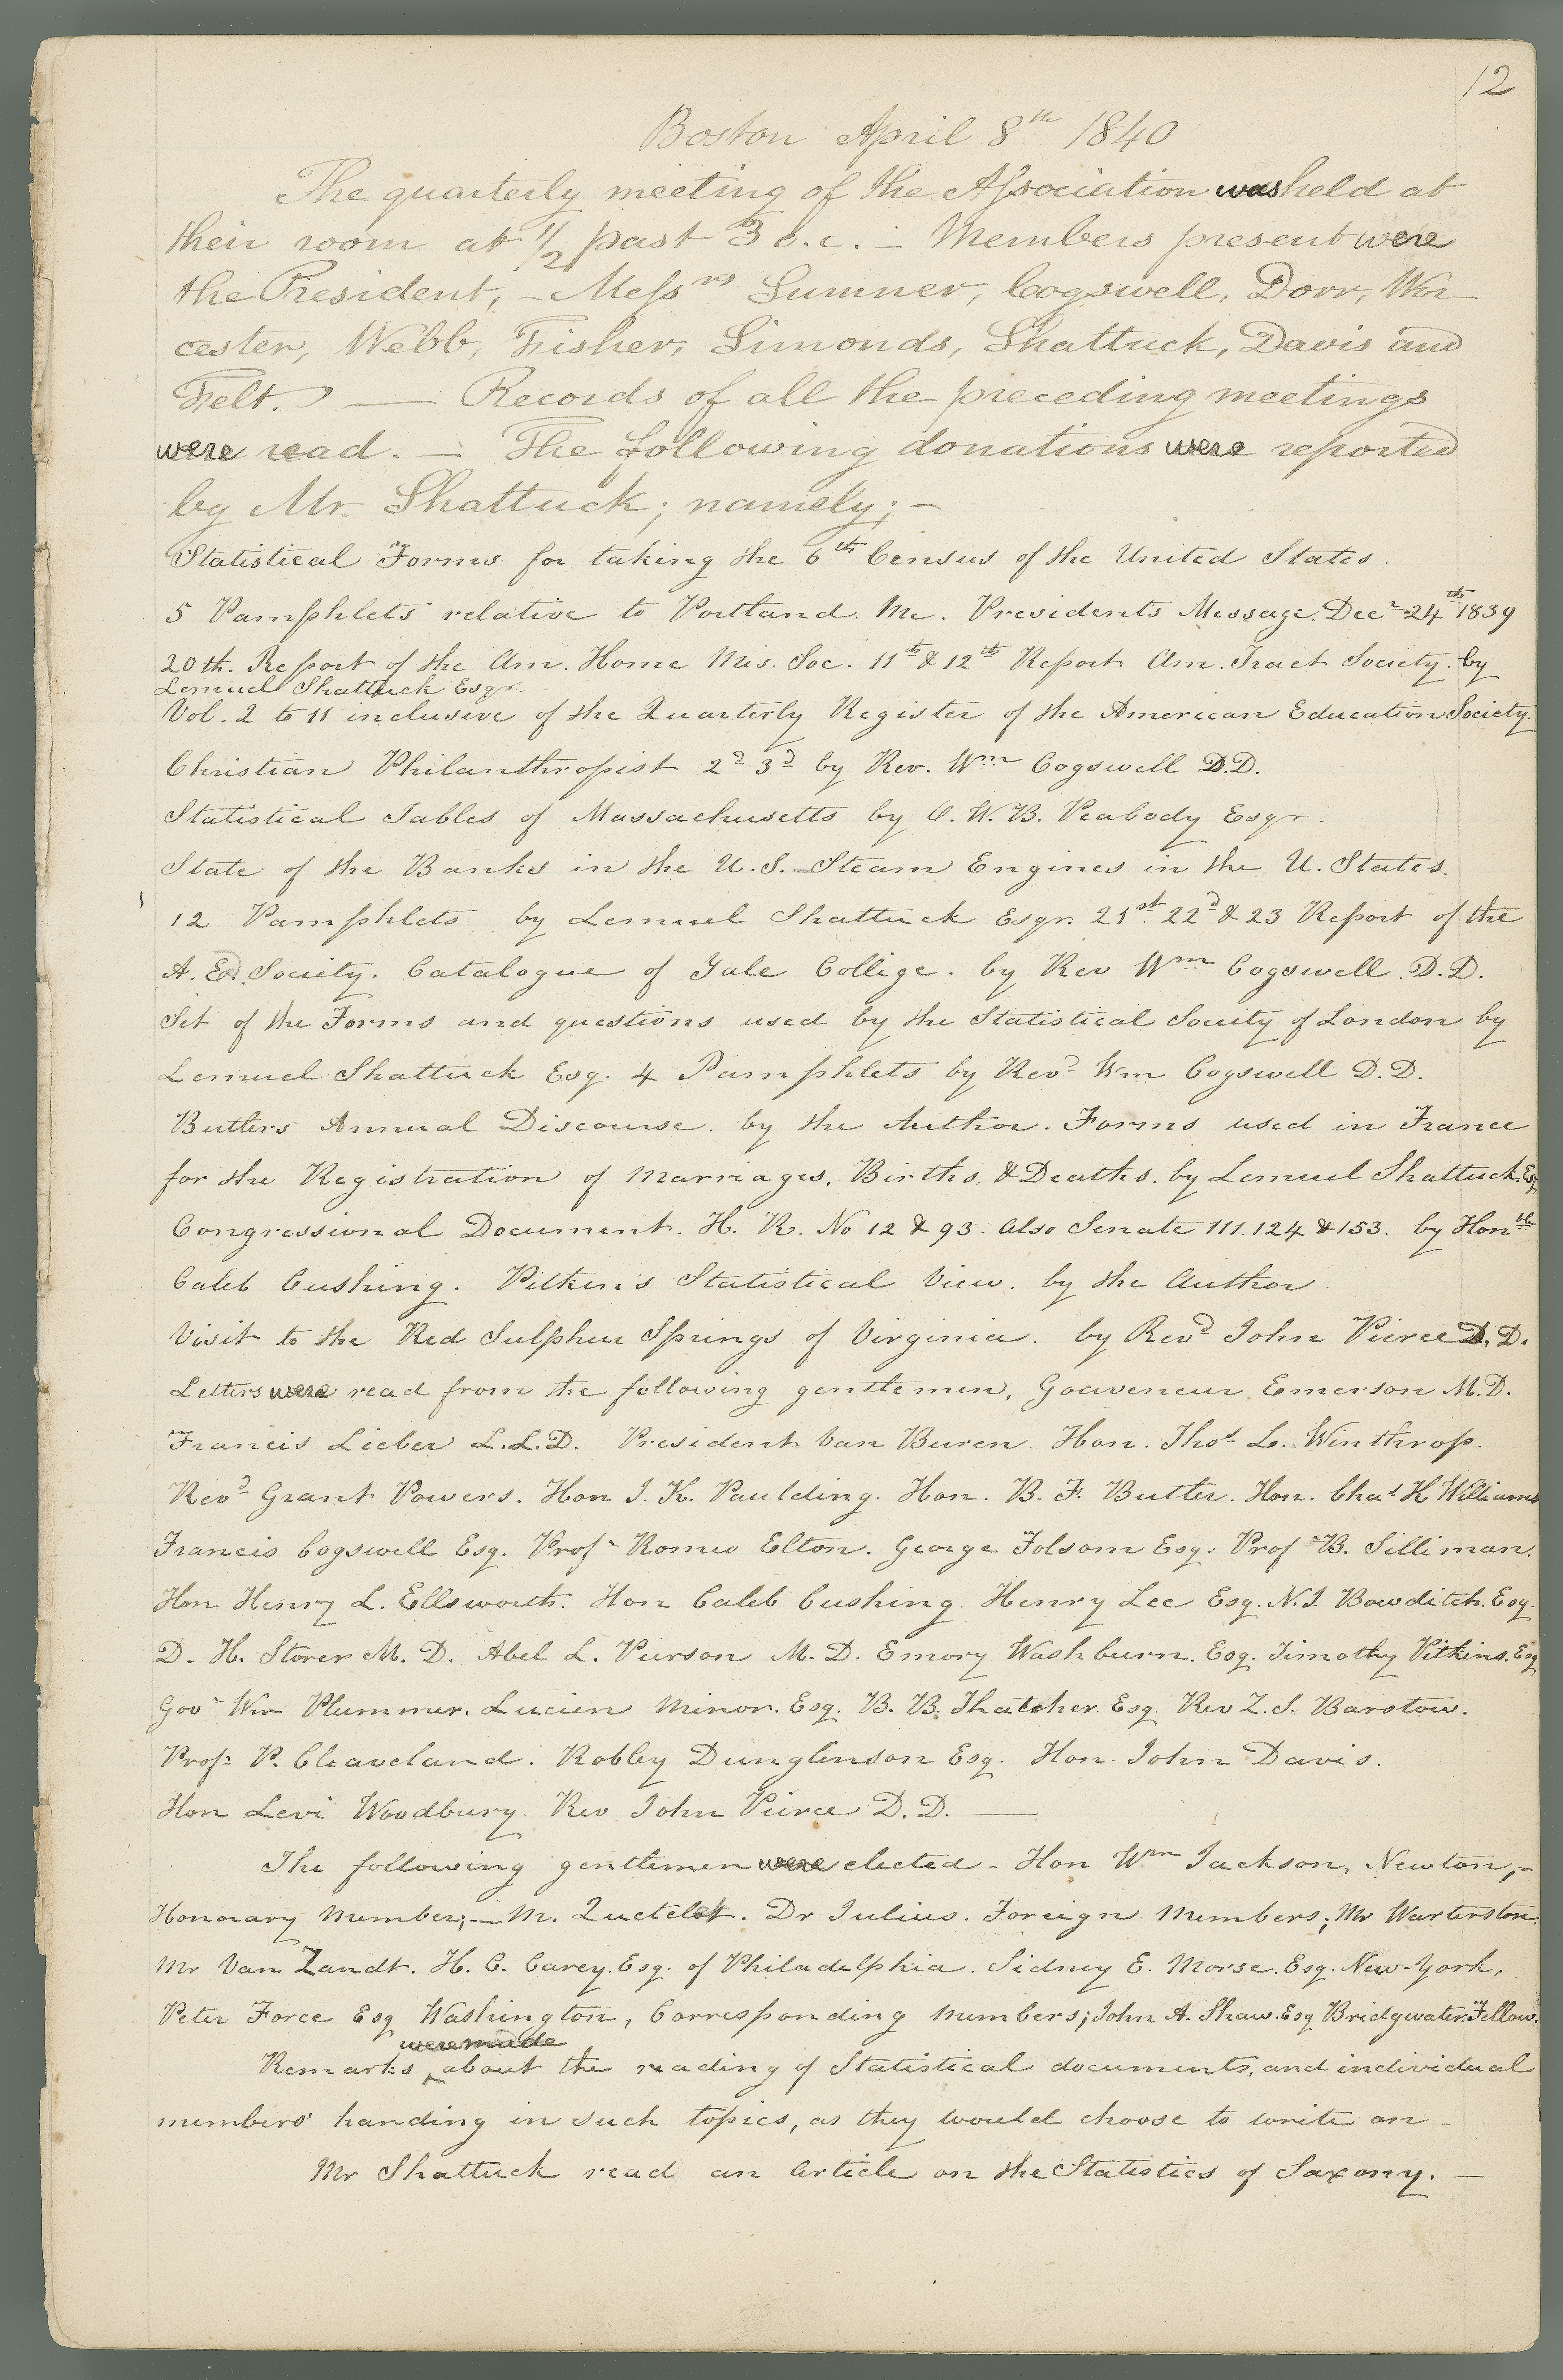 12
Boston April 8th 1840
The quarterly meeting of the Association was held at
their room at 1/2 past 3 o.c. — Members present were
the President, — Messrs Sumner, Cogswell, Dorr, Wor-
cester, Webb, Fisher, Simonds, Shattuck, Davis and
Felt. — Records of all the preceding meetings
were read. — The following donations were reported
by Mr. Shattuck; namely; —
Statistical Forms for taking the 6th Census of the United States.
5 Pamphlets relative to Portland. Me. Presidents Message. Decr 24th 1839
20th. Report of the Am. Home Mis. Soc. 11th & 12th Report Am. Tract Society. by
Lemuel Shattuck Esqr.
Vol. 2 to 11 inclusive of the Quarterly Register of the American Education Society.
Christian Philanthropist 2d 3d by Rev. Wm Cogswell D.D.
Statistical Tables of Massachusetts by O. W. B. Peabody Esqr.
State of the Banks in the U.S. Steam Engines in the U. States.
12 Pamphlets by Lemuel Shattuck Esqr. 21st 22d & 23 Report of the
A. Ed. Society. Catalogue of Yale College. by Rev Wm Cogswell. D.D.
Set of the Forms and questions used by the Statistical Society of London by
Lemuel Shattuck Esq. 4 Pamphlets by Revd Wm Cogswell D.D.
Butlers Annual Discourse. by the Author. Forms used in France
for the Registration of Marriages, Births, & Deaths. by Lemuel Shattuck. Esq
Congressional Document. H. R. No 12 & 93. also Senate 111. 124 & 153. by Honble
Caleb Cushing. Pitkin's Statistical View. by the Author.
Visit to the Red Sulphur Springs of Virginia. by Revd John Pierce D. D.
Letters were read from the following gentlemen, Gouveneur Emerson M.D.
Francis Lieber L.L.D. President Van Buren. Hon. Thos L. Winthrop.
Revd Grant Powers. Hon J. K. Paulding. Hon. B. F. Butler. Hon. Chas K Williams
Francis Cogswell Esq. Profr Romeo Elton. George Folsom Esq. Prof B. Silliman.
Hon Henry L. Ellsworth. Hon Caleb Cushing. Henry Lee Esq. N. I. Bowditch. Esq.
D. H. Storer M. D. Abel L. Pierson M. D. Emory Washburn. Esq. Timothy Pitkins. Esq
Gov Wm Plummer. Lucien Minor. Esq. B. B. Thatcher. Esq. Rev Z. S. Barstow.
Profr P. Cleaveland. Robley Dunglinson Esq. Hon John Davis.
Hon Levi Woodbury. Rev John Pierce D. D. —
The following gentlemen were elected - Hon Wm Jackson, Newton, -
Honorary Member; — M. Quetelet. Dr Julius. Foreign Members; Mr Warterston
Mr Van Zandt. H. C. Carey. Esq. of Philadelphia. Sidney E. Morse. Esq. New-York,
Peter Force Esq Washington, Corresponding Members; John A. Shaw. Esq Bridgwater. Fellow.
were made
Remarks about the reading of Statistical documents, and individual
members' handing in such topics, as they would choose to write on -
Mr Shattuck read an article on the Statistics of Saxony. —